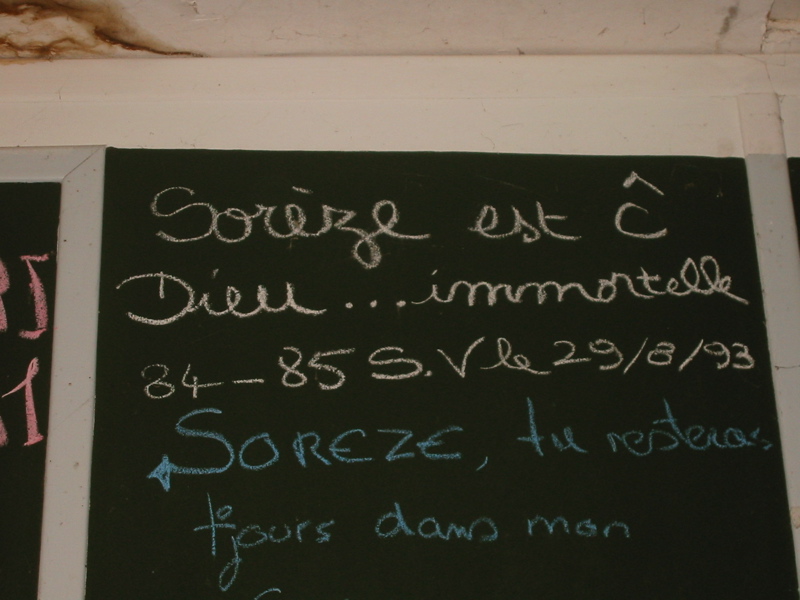 Sorèze est ĉ
Dieu... immortelle
84-85 S.V le 29/8/93
SOREZE, tu resteras
tjours dans mon